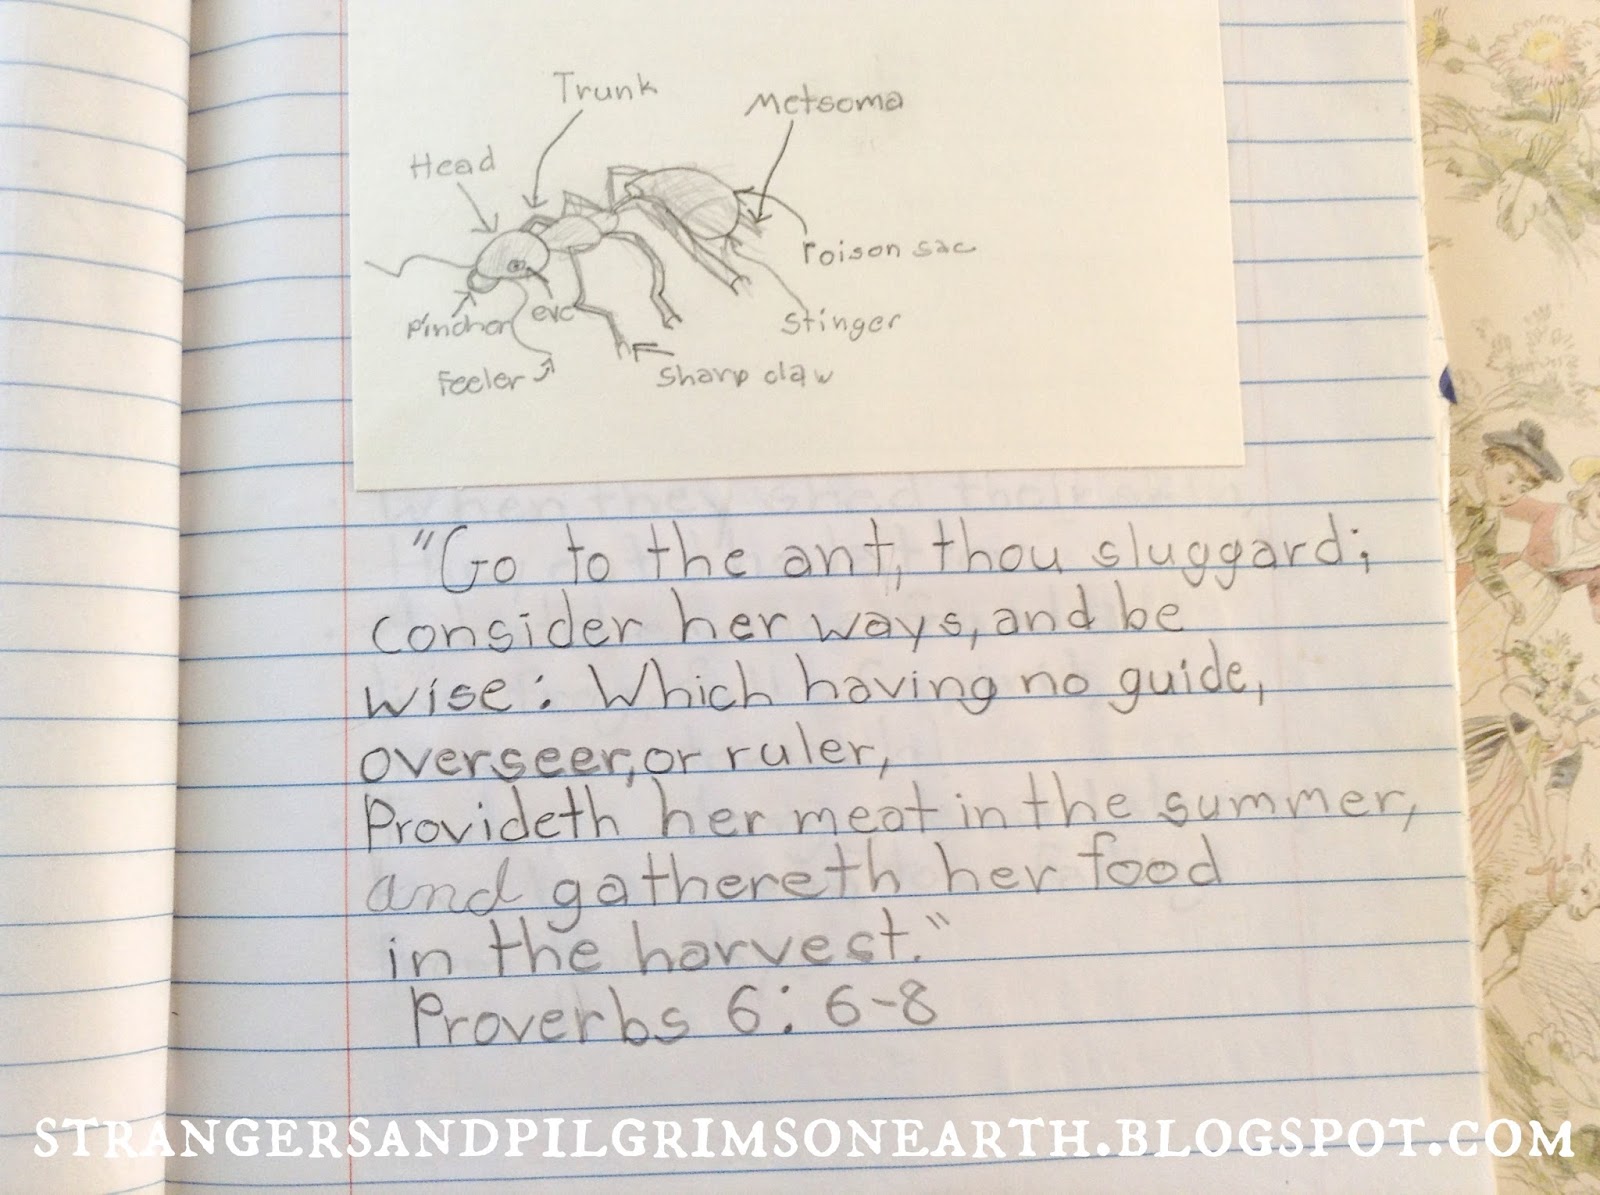 Trunk
Metsoma
Head
Poison sac
Pinchor
eye
Stinger
Feeler
Sharp claw
When they shed their
"Go to the ant, thou sluggard;
consider her ways, and be
wise: Which having no guide,
overseer, or ruler,
Provideth her meat in the summer,
and gathereth her food
in the harvest."
Proverbs 6:6-8
STRANGERSANDPILGRIMSONEARTH.BLOGSPOT.COM